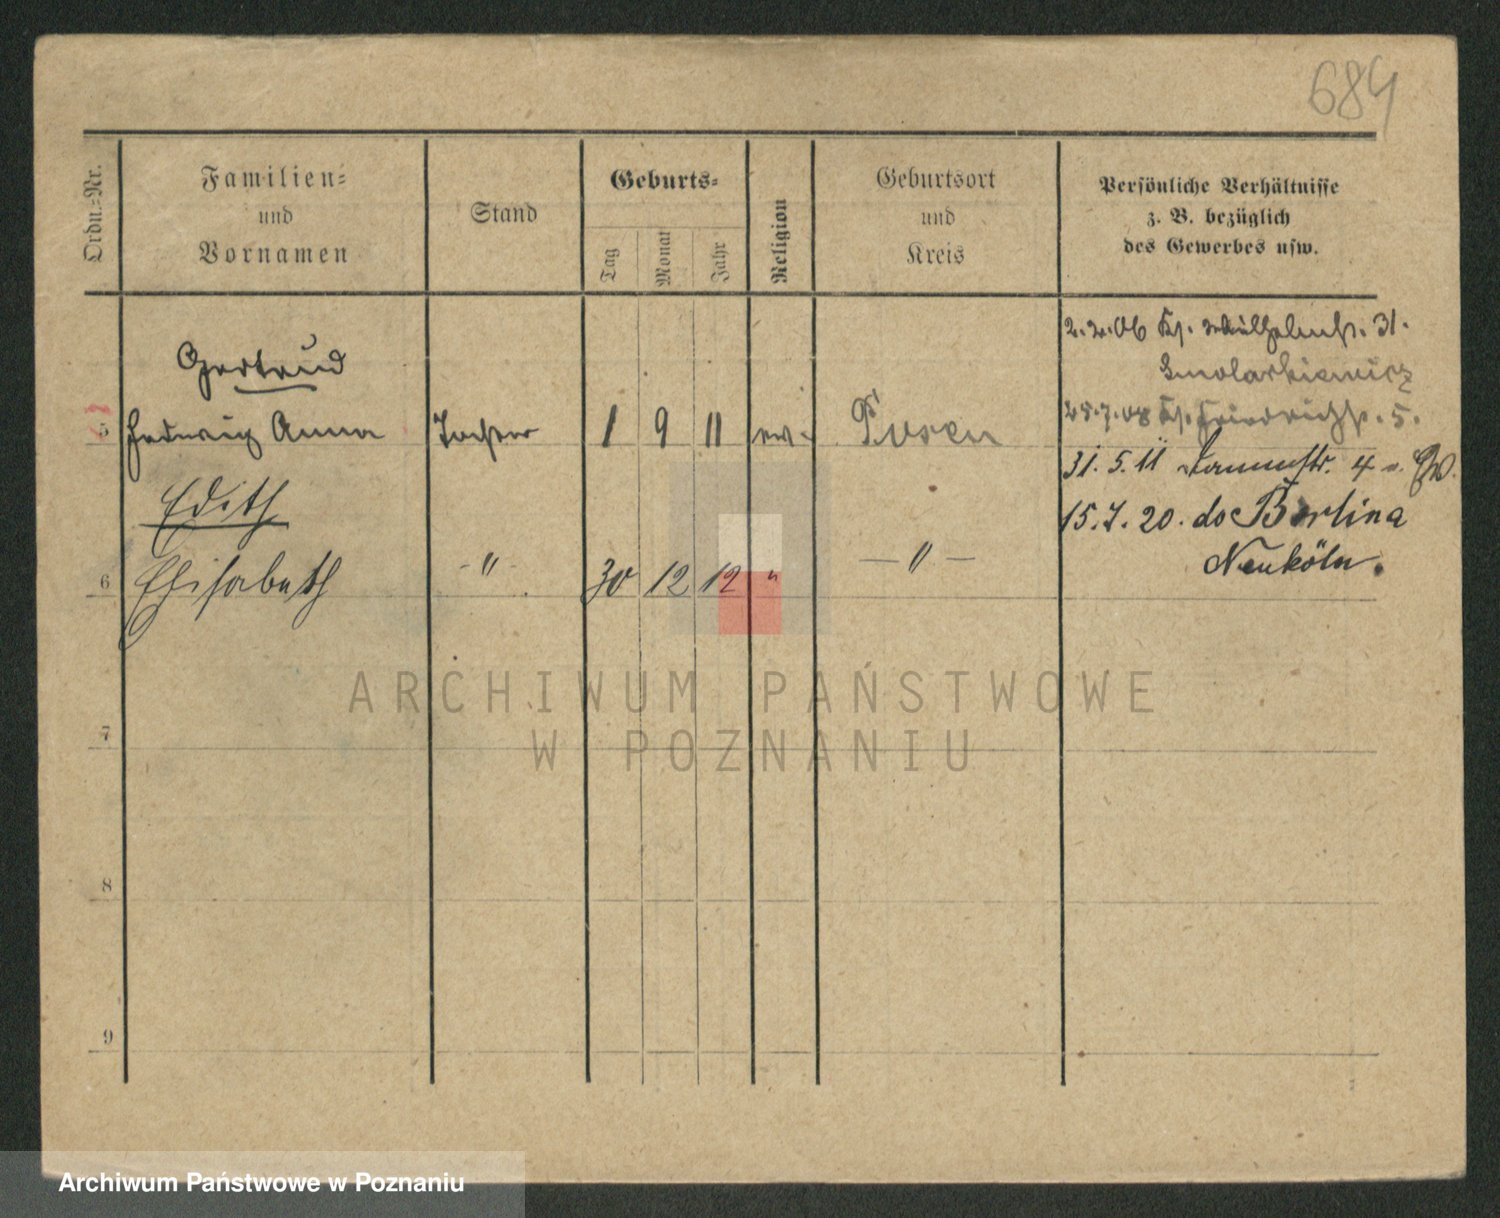 684
Ordn.=Nr.
Familien=
und
Vornamen
Stand
Geburts=
Tag
Monat
Jahr
Religion
Geburtsort
und
Kreis
Persönliche Verhältnisse
z. B. bezüglich
des Gewerbes usw.
2.2.06 Wilhelmstr. 31.
Smolarkiewicz
25.7.08 Friedrichstr. 5.
Gertrud
5 Hedwig Anna Tochter 1 9 11 ev. Posen
31. 5. 11 4
Edith
15.7.20. do Berlina
Neuköln.
6 Elisabeth -"- 30 12 12 " -"-
7
8
9
ARCHIWUM PAŃSTWOWE
W POZNANIU
Archiwum Państwowe w Poznaniu